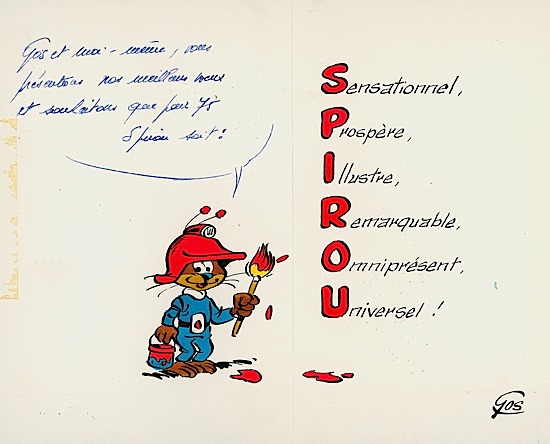 Gos et moi-même, vous
présentons nos meilleurs voeux
et souhaitons que pour 75
Spirou soit :
Sensationnel,
Prospère,
Illustre,
Remarquable,
Omniprésent,
Universel !
Gos